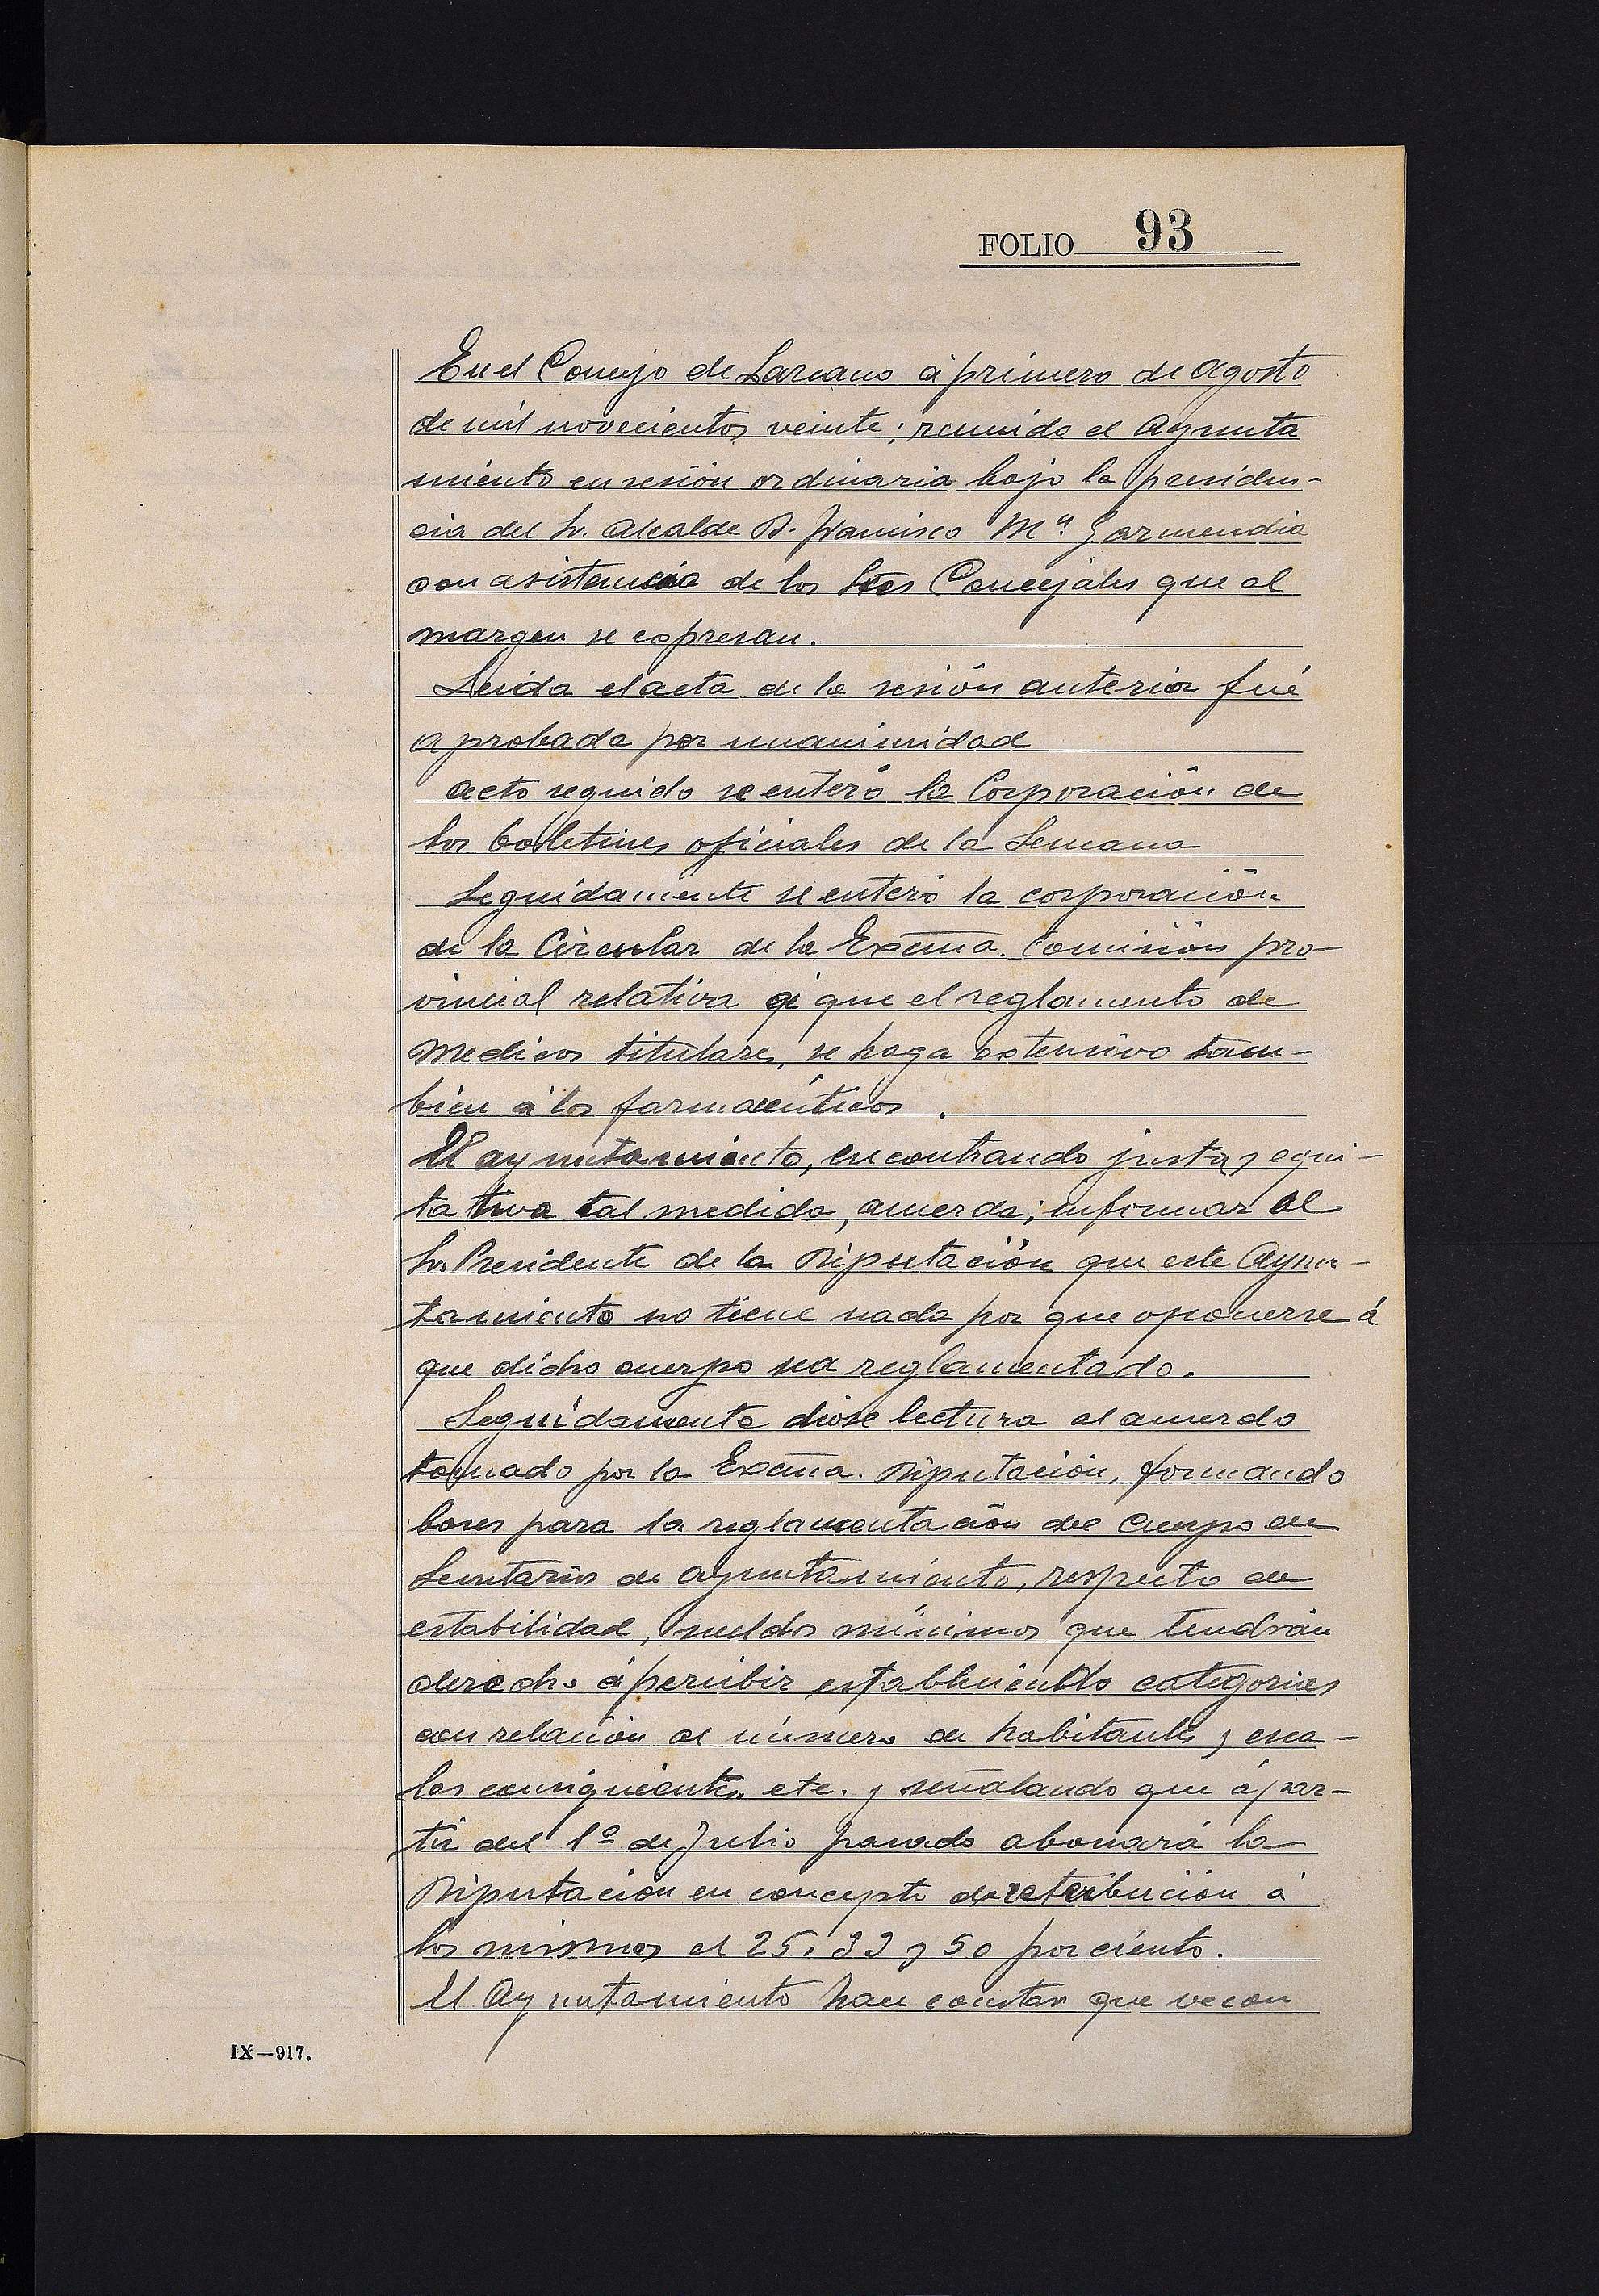 FOLIO 93
En el Concejo de Lazcano á primero de Agosto
de mil novecientos veinte; reunido el Ayunta
miento en sesión ordinaria bajo la presiden-
cia del Sr. Alcalde D. Francisco Mª Garmendia
con asistencia de los Sres Concejales que al
margen se expresan.
Leida el acta de la sesión anterior fué
aprobada por unanimidad
Acto seguido se enteró la Corporación de
los boletines oficiales de la Semana
Seguidamente se enteró la corporación
de la Circular de la Excma. Comisión pro-
vincial relativa á que el reglamento de
Medicos titulares, se haga extensivo tam-
bién á los farmacéuticos.
El ayuntamiento, encontrando justa y equi-
tativa tal medida, acuerda; informar al
Sr. Presidente de la Diputación que este Ayun-
tamiento no tiene nada por que oponerse á
que dicho cuerpo sea reglamentado.
Seguidamente diose lectura al acuerdo
tomado por la Excma. Diputación, formando
bases para la reglamentación del Cuerpo de
Secretarios de Ayuntamiento, respecto de
estabilidad, sueldos mínimos que tendrán
derecho á percibir estableciendo categorias
con relación al número de habitantes y esca-
las consiguientes etc. y señalando que á par-
tir del 1º de Julio pasado abonará la
Diputación en concepto de retribución á
los mismos el 25, 33 y 50 por ciento.
El Ayuntamiento hace constar que ve con
IX—917.